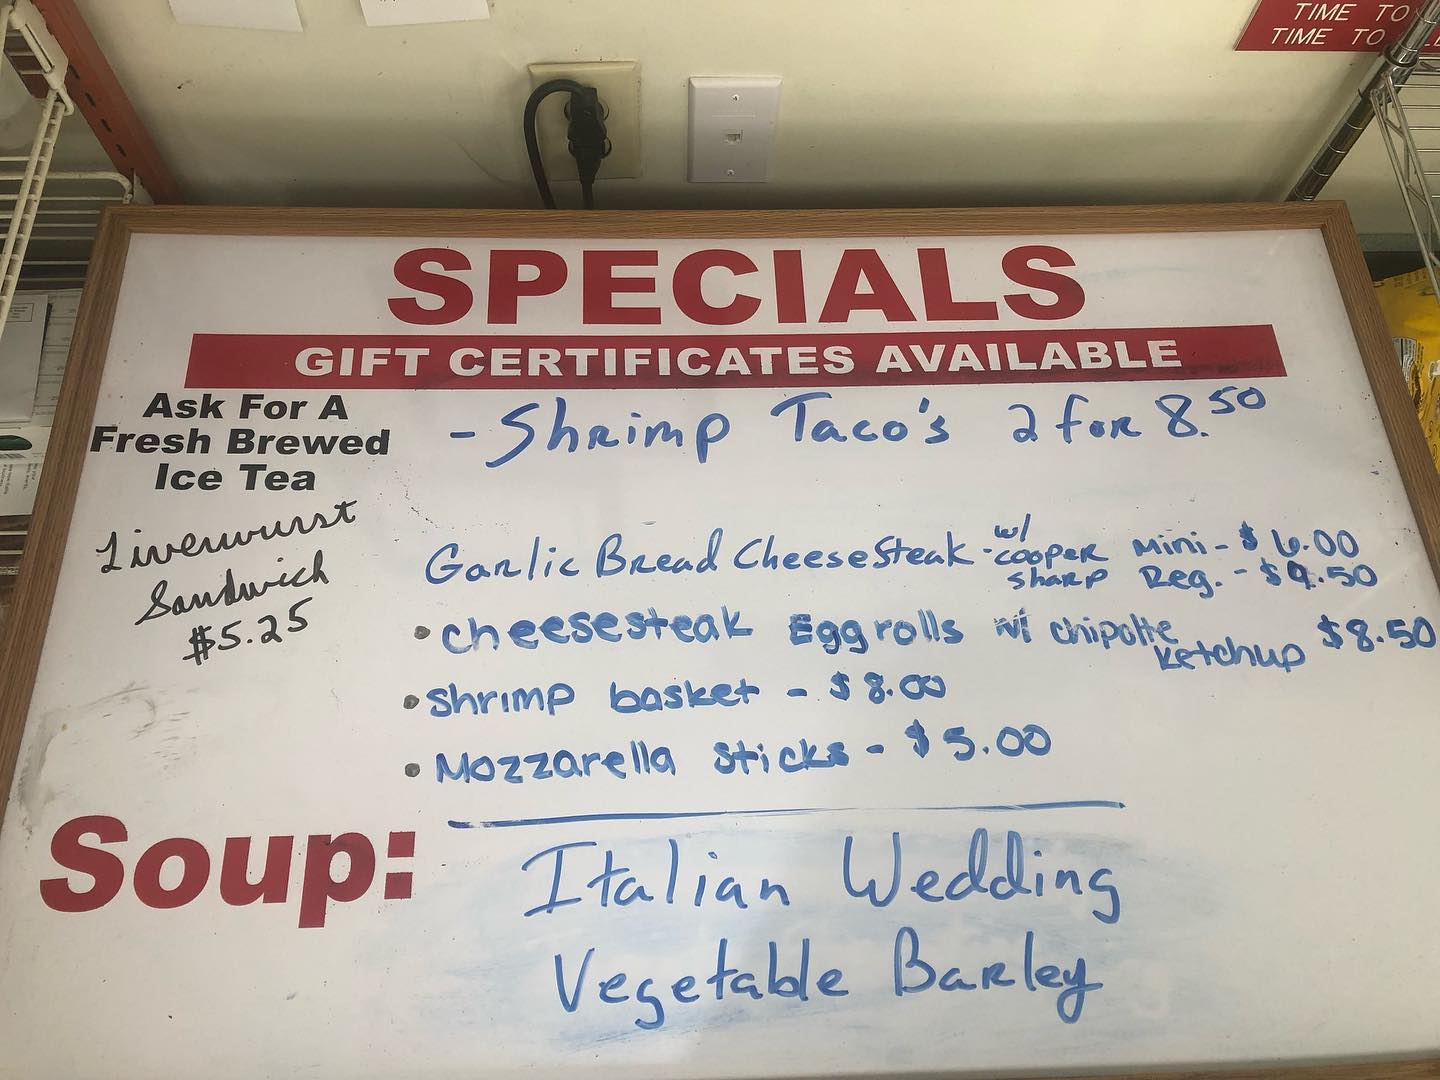 TIME TO
TIME TO
SPECIALS
GIFT CERTIFICATES AVAILABLE
Ask For A
Fresh Brewed
Ice Tea
Liverwurst
Sandwich
$5.25
- Shrimp Taco's 2 for 8.50
Garlic Bread CheeseSteak - w/ cooper sharp Mini - $6.00
Reg. - $9.50
• cheesesteak Eggrolls w/ chipotle ketchup $8.50
• shrimp basket - $8.00
• Mozzarella sticks - $5.00
Soup:
Italian Wedding
Vegetable Barley